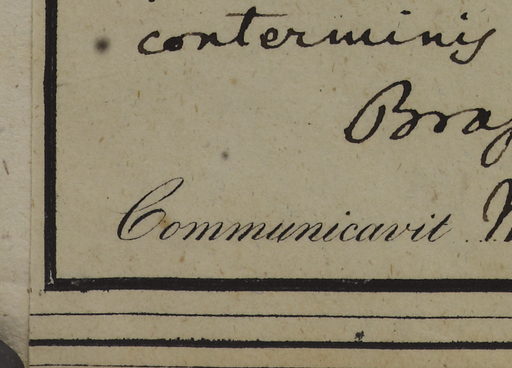 conterminis
Communicavit